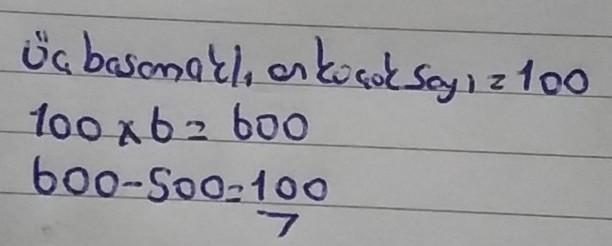 Üç basamaklı en küçük sayı = 100
100 x 6 = 600
600-500=100
7